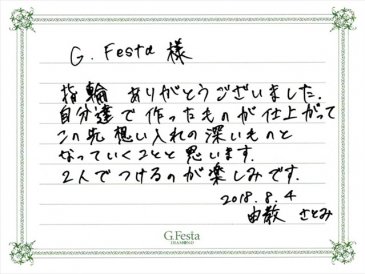 G. Festa 様
指輪 ありがとうございました.
自分達で作ったものが仕上がって
この先想い入れの深いものと
なっていくことと思います.
2人でつけるのが楽しみです.
2018. 8. 4
由教 さとみ
G.Festa
DIAMOND